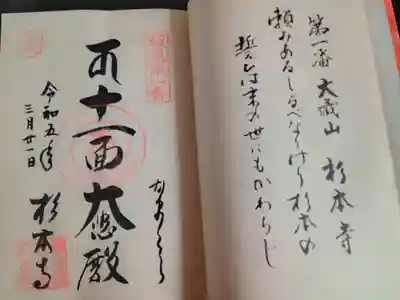 第一番 大蔵山 杉本寺
頼みあるしるべなりけり杉本の
誓ひは末の世にもかわらじ
十一面大悲殿
令和五年
三月廿一日
杉本寺